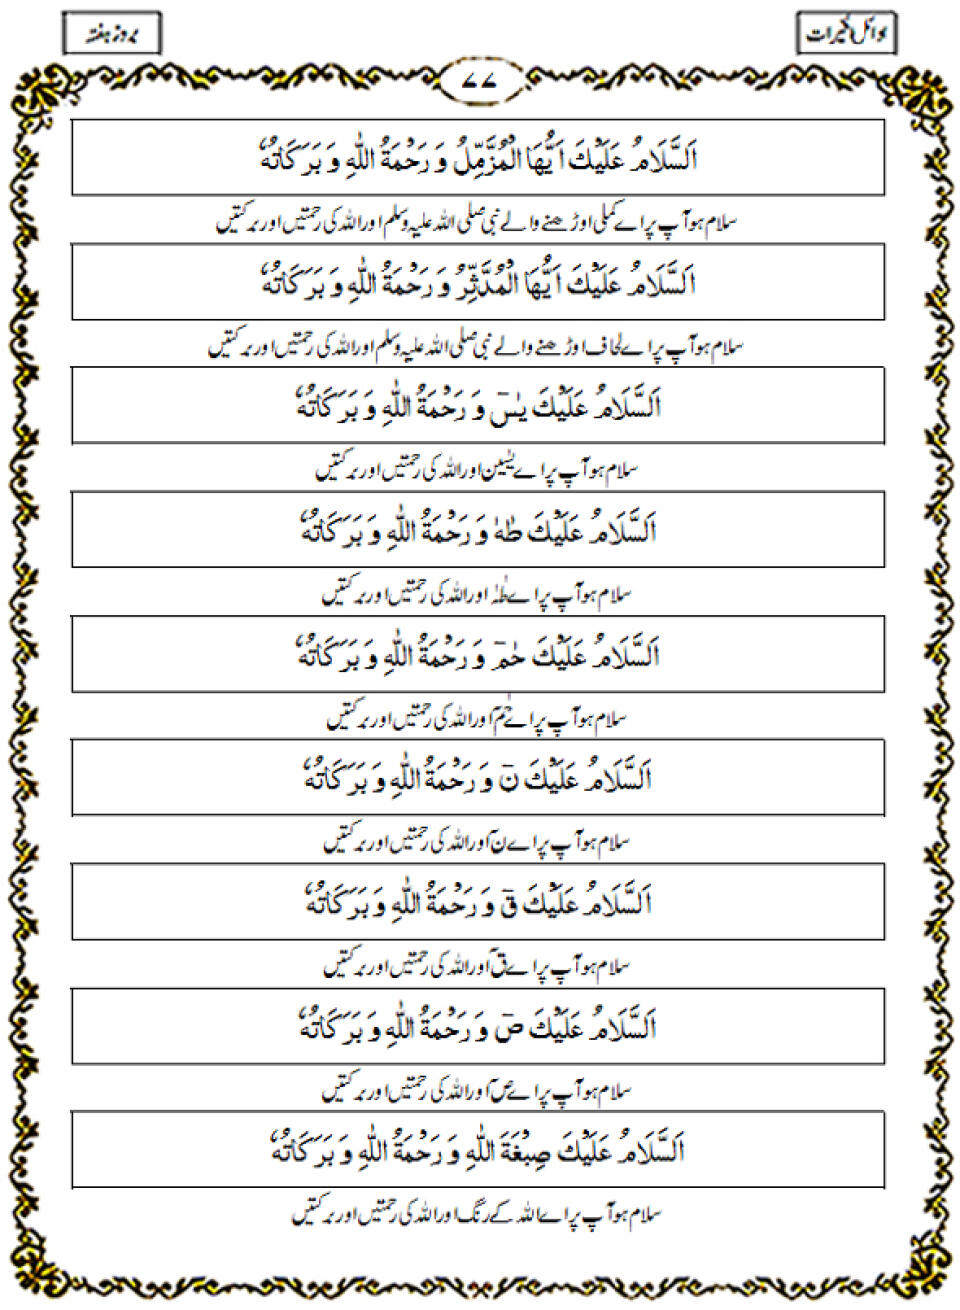 بروز ہفتہ
اوائل الخیرات
۷۷
اَلسَّلَامُ عَلَيْكَ اَيُّهَا الْمُزَّمِّلُ وَ رَحْمَةُ اللّٰهِ وَ بَرَكَاتُهٗ
سلام ہو آپ پر اے کملی اوڑھنے والے نبی صلی اللہ علیہ وسلم اور اللہ کی رحمتیں اور برکتیں
اَلسَّلَامُ عَلَيْكَ اَيُّهَا الْمُدَّثِّرُ وَ رَحْمَةُ اللّٰهِ وَ بَرَكَاتُهٗ
سلام ہو آپ پر اے لحاف اوڑھنے والے نبی صلی اللہ علیہ وسلم اور اللہ کی رحمتیں اور برکتیں
اَلسَّلَامُ عَلَيْكَ يٰسٓ وَ رَحْمَةُ اللّٰهِ وَ بَرَكَاتُهٗ
سلام ہو آپ پر اے یٰسین اور اللہ کی رحمتیں اور برکتیں
اَلسَّلَامُ عَلَيْكَ طٰهٰ وَ رَحْمَةُ اللّٰهِ وَ بَرَكَاتُهٗ
سلام ہو آپ پر اے طٰہٰ اور اللہ کی رحمتیں اور برکتیں
اَلسَّلَامُ عَلَيْكَ حٰمٓ وَ رَحْمَةُ اللّٰهِ وَ بَرَكَاتُهٗ
سلام ہو آپ پر اے حٰمٓ اور اللہ کی رحمتیں اور برکتیں
اَلسَّلَامُ عَلَيْكَ نٓ وَ رَحْمَةُ اللّٰهِ وَ بَرَكَاتُهٗ
سلام ہو آپ پر اے نٓ اور اللہ کی رحمتیں اور برکتیں
اَلسَّلَامُ عَلَيْكَ قٓ وَ رَحْمَةُ اللّٰهِ وَ بَرَكَاتُهٗ
سلام ہو آپ پر اے قٓ اور اللہ کی رحمتیں اور برکتیں
اَلسَّلَامُ عَلَيْكَ صٓ وَ رَحْمَةُ اللّٰهِ وَ بَرَكَاتُهٗ
سلام ہو آپ پر اے صٓ اور اللہ کی رحمتیں اور برکتیں
اَلسَّلَامُ عَلَيْكَ صِبْغَةَ اللّٰهِ وَ رَحْمَةُ اللّٰهِ وَ بَرَكَاتُهٗ
سلام ہو آپ پر اے اللہ کے رنگ اور اللہ کی رحمتیں اور برکتیں